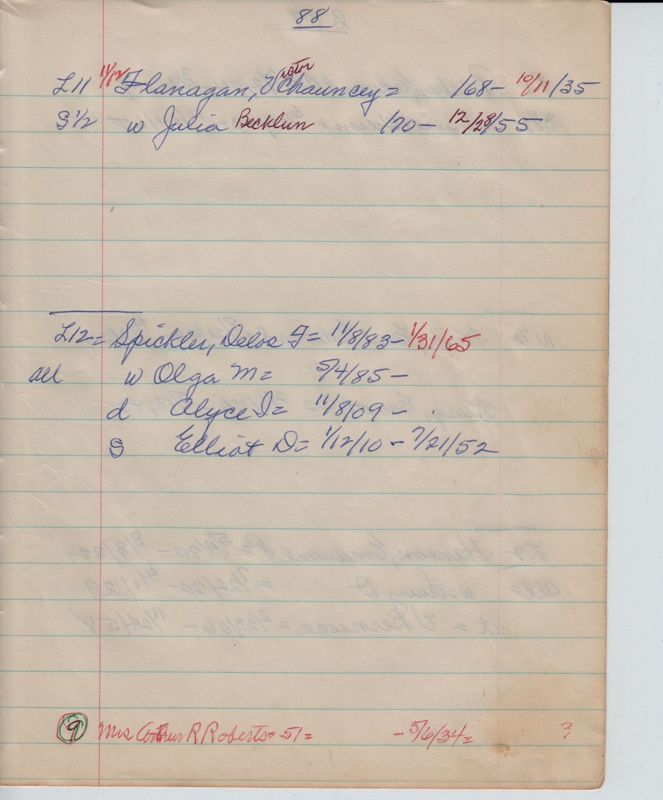 88
L11 11/12 Flanagan, Victor Chauncey = 168 - 10/11/35
S 1/2 w Julia Becklun 170 - 12/28/55
L12 = Spickler, Delos F = 11/8/83 - 1/31/65
all w Olga M = 5/4/85 -
d Alyce I = 11/8/09 -
S Elliot D = 1/12/10 - 7/21/52
9 Mrs Arthur R Roberts = 51 = - 5/6/34 = 3